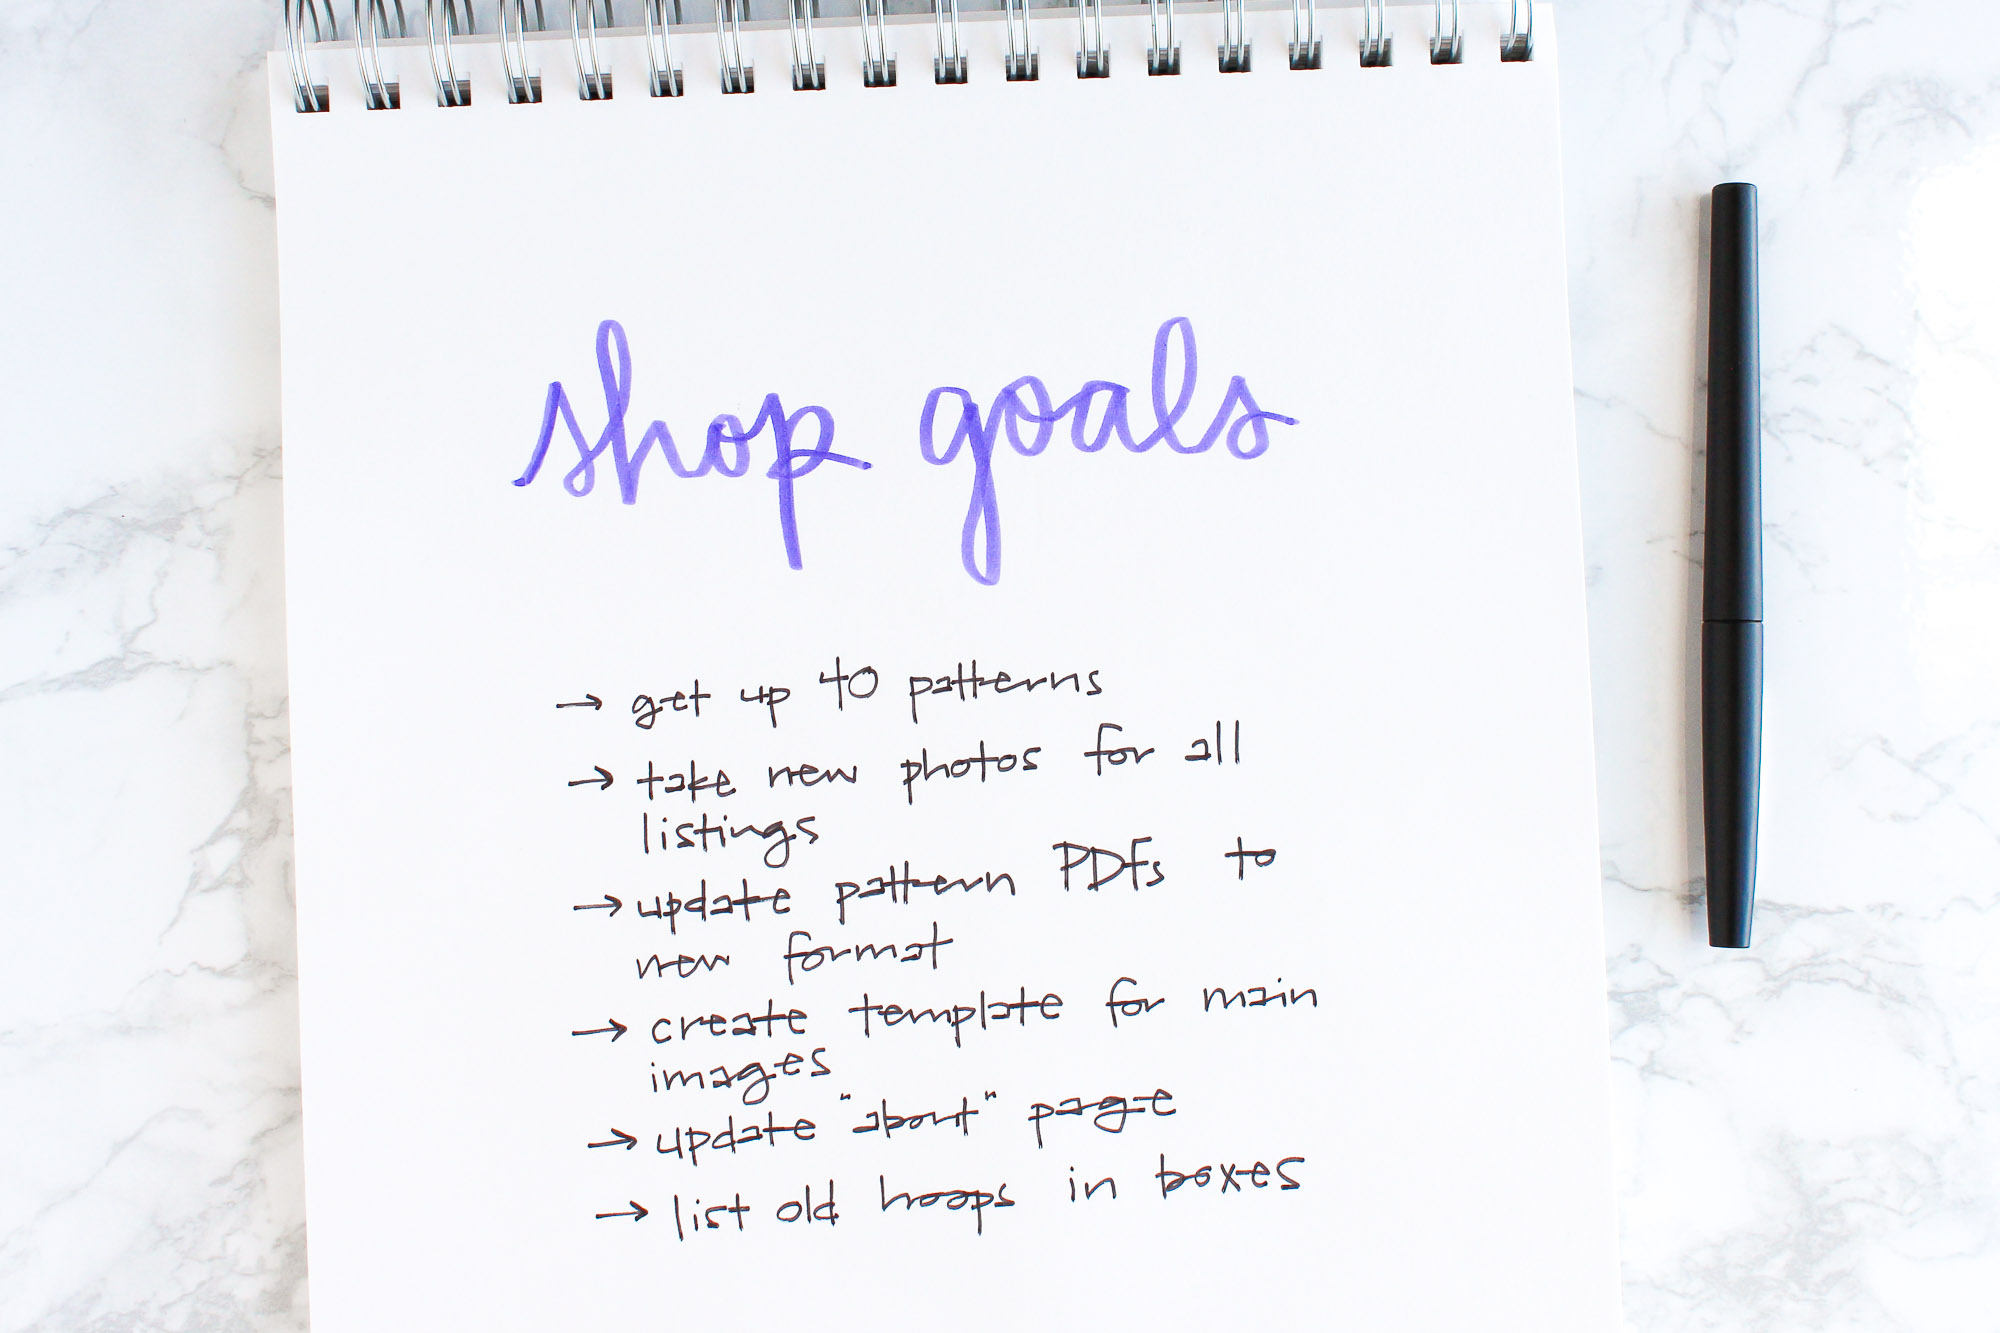 shop goals
→ get up 40 patterns
→ take new photos for all
listings
→ update pattern PDFs to
new format
→ create template for main
images
→ update "about" page
→ list old hoops in boxes